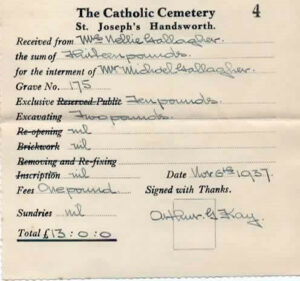 The Catholic Cemetery 4
St. Joseph's Handsworth.
Received from Mrs Nellie Gallagher.
the sum of Thirteen pounds.
for the interment of Mr Michael Gallagher.
Grave No. 175
Exclusive Reserved Public Ten pounds.
Excavating Two pounds.
Re-opening nil
Brickwork nil
Removing and Re-fixing
Inscription nil Date Nov 6th 1937.
Fees One pound. Signed with Thanks.
Sundries nil Arthur G. Kay.
Total £13:0:0